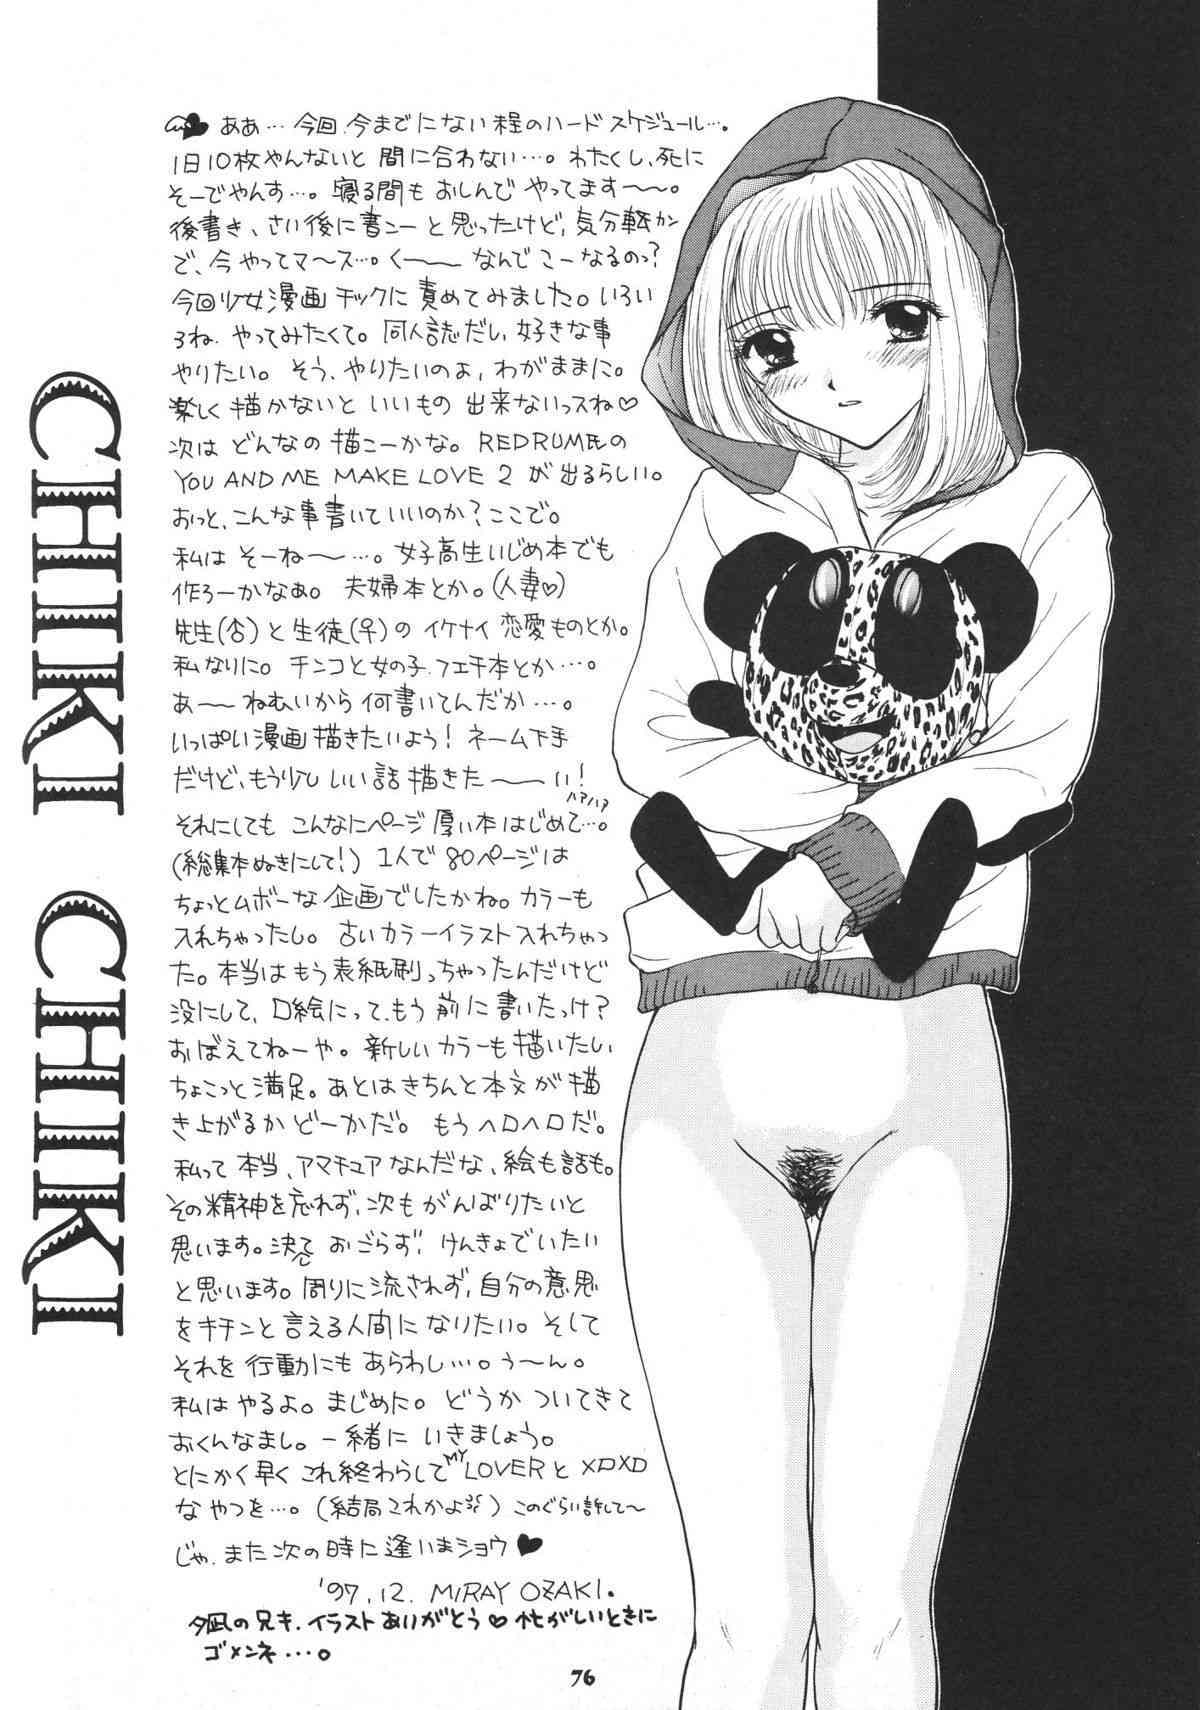 CHIKI CHIKI
ああ…今回、今までにない程のハードスケジュール…。
1日10枚やんないと間に合わない…。わたくし、死に
そーでやんす…。寝る間もおしんでやってます〜〜。
後書き、さい後に書こーと思ったけど、気分転カン
で、今やってマース…。くー〜なんでこーなるのっ?
今回少女漫画チックに責めてみました。いろい
ろね、やってみたくて。同人誌だし、好きな事
やりたい。そう、やりたいのよ、わがままに。
楽しく描かないといいもの出来ないっスね♡
次はどんなの描こーかな。REDRUM氏の
YOU AND ME MAKE LOVE 2が出るらしい。
おっと、こんな事書いていいのか?ここで。
私はそーね〜…。女子高生いじめ本でも
作ろーかなあ。夫婦本とか。(人妻♡)
先生(♂)と生徒(♀)のイケナイ恋愛ものとか。
私なりに。チンコと女の子、フェチ本とか…。
あー〜ねむいから何書いてんだか…。
いっぱい漫画描きたいよう!ネーム下手
だけど、もう少しいい話描きた〜〜い!
ハアハア
それにしてもこんなにページ厚い本はじめて…。
(総集本ぬきにして!)1人で80ページは
ちょっとムボーな企画でしたかね。カラーも
入れちゃったし。古いカラーイラスト入れちゃっ
た。本当はもう表紙刷っちゃったんだけど
没にして、口絵にって、もう前に書いたっけ?
おぼえてねーや。新しいカラーも描いたし
ちょこっと満足。あとはきちんと本文が描
き上がるかどーかだ。もうヘロヘロだ。
私って本当、アマチュアなんだな、絵も話も。
その精神を忘れず、次もがんばりたいと
思います。決しておごらず!けんきょでいたい
と思います。周りに流されず、自分の意思
をキチンと言える人間になりたい。そして
それを行動にもあらわし…。うーん。
私はやるよ。まじめた。どうかついてきて
おくんなまし。一緒にいきましょう。
とにかく早くこれ終わらしてMY LOVERとXDXD
なやつを…。(結局これかよ)このぐらい許して〜
じゃ、また次の時に逢いまショウ♥
'97.12. MIRAY OZAKI.
夕凪の兄キ、イラストありがとう♡忙がしいときに
ゴメンネ…。
76